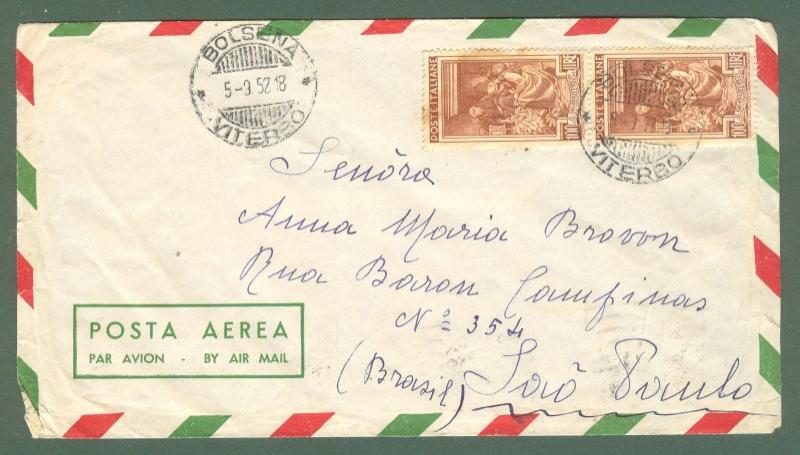 BOLSENA
5-9.52 18
VITERBO
POSTE ITALIANE
100 LIRE
POSTE ITALIANE
100 LIRE
VITERBO
Senõra
Anna Maria Bravon
Rua Baron Campinas
Nº 354
(Brasil) Saõ Paulo
POSTA AEREA
PAR AVION - BY AIR MAIL